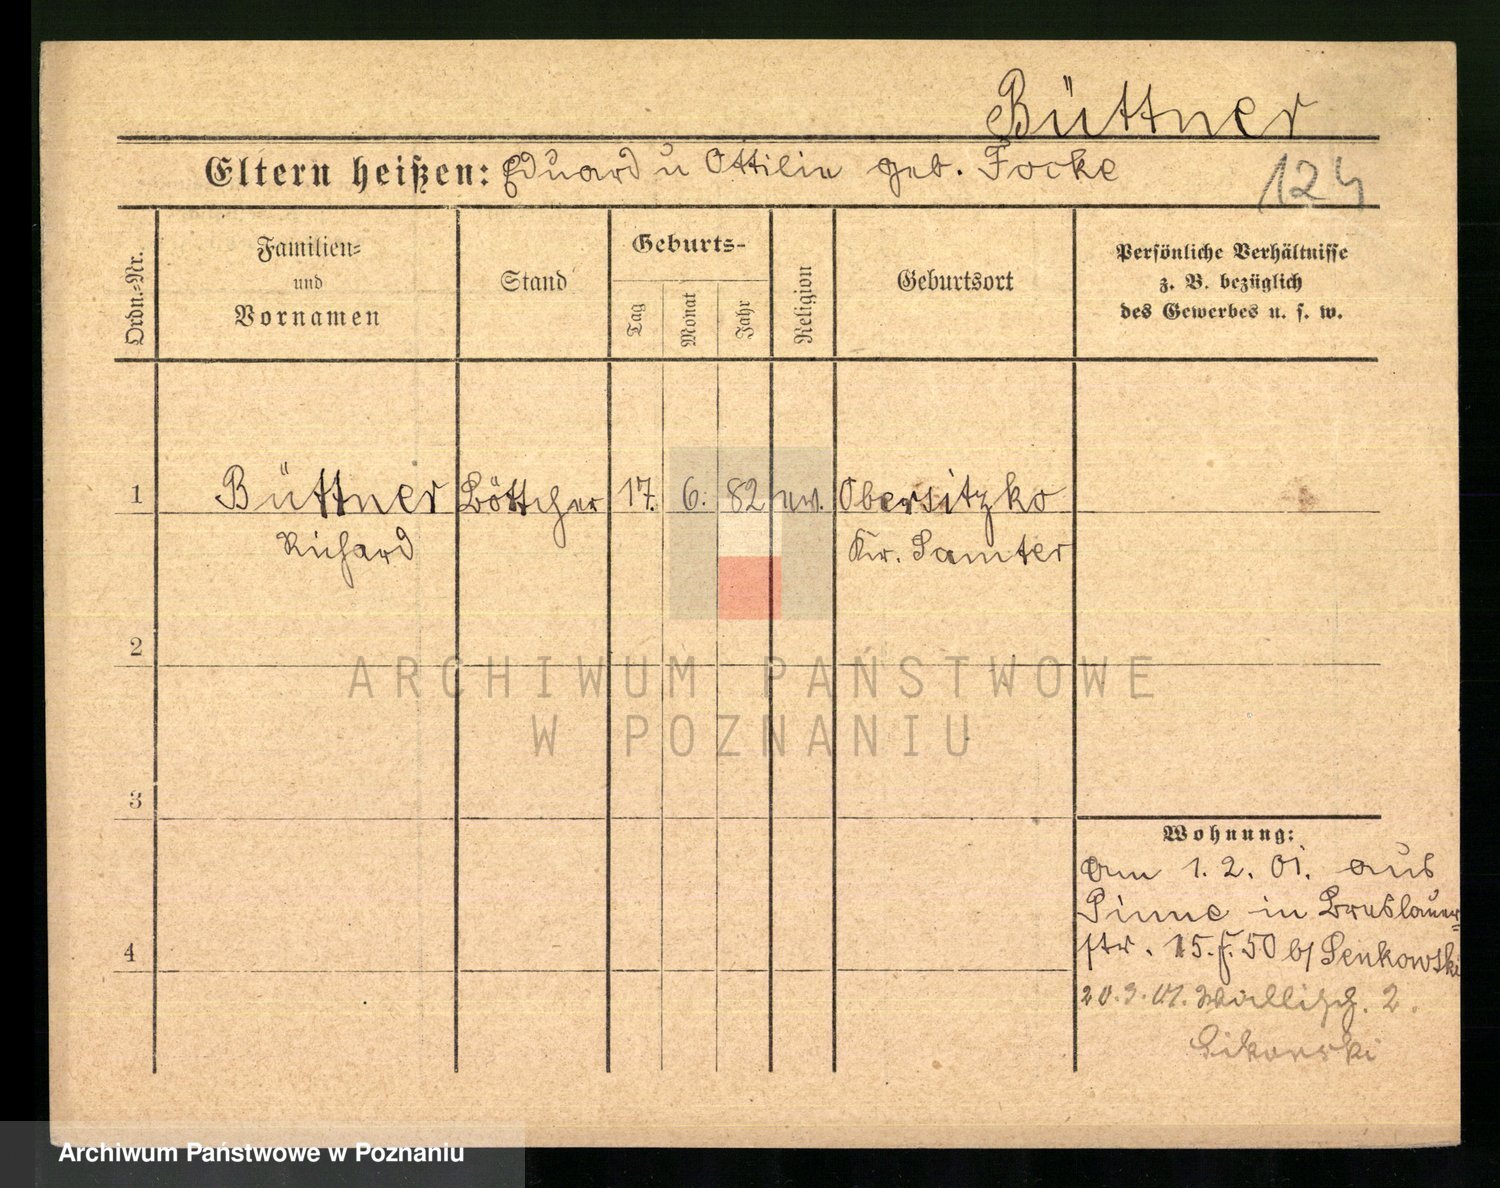 Büttner
Eltern heißen: Eduard u Ottilie geb. Focke
124
Ordn.-Nr.
Familien-
und
Vornamen
Stand
Geburts-
Tag
Monat
Jahr
Religion
Geburtsort
Persönliche Verhältnisse
z. B. bezüglich
des Gewerbes u. s. w.
1
Büttner Böttcher 17. 6. 82 ev. Obersitzko
Richard Kr. Samter
2
ARCHIWUM PAŃSTWOWE
W POZNANIU
3
Wohnung:
Am 1. 2. 01. aus
Pinne in Breslauer-
4
str. 15. F. 50 b/ Penkowski
20.3.01. Wallisch. 2.
Sikorski
Archiwum Państwowe w Poznaniu